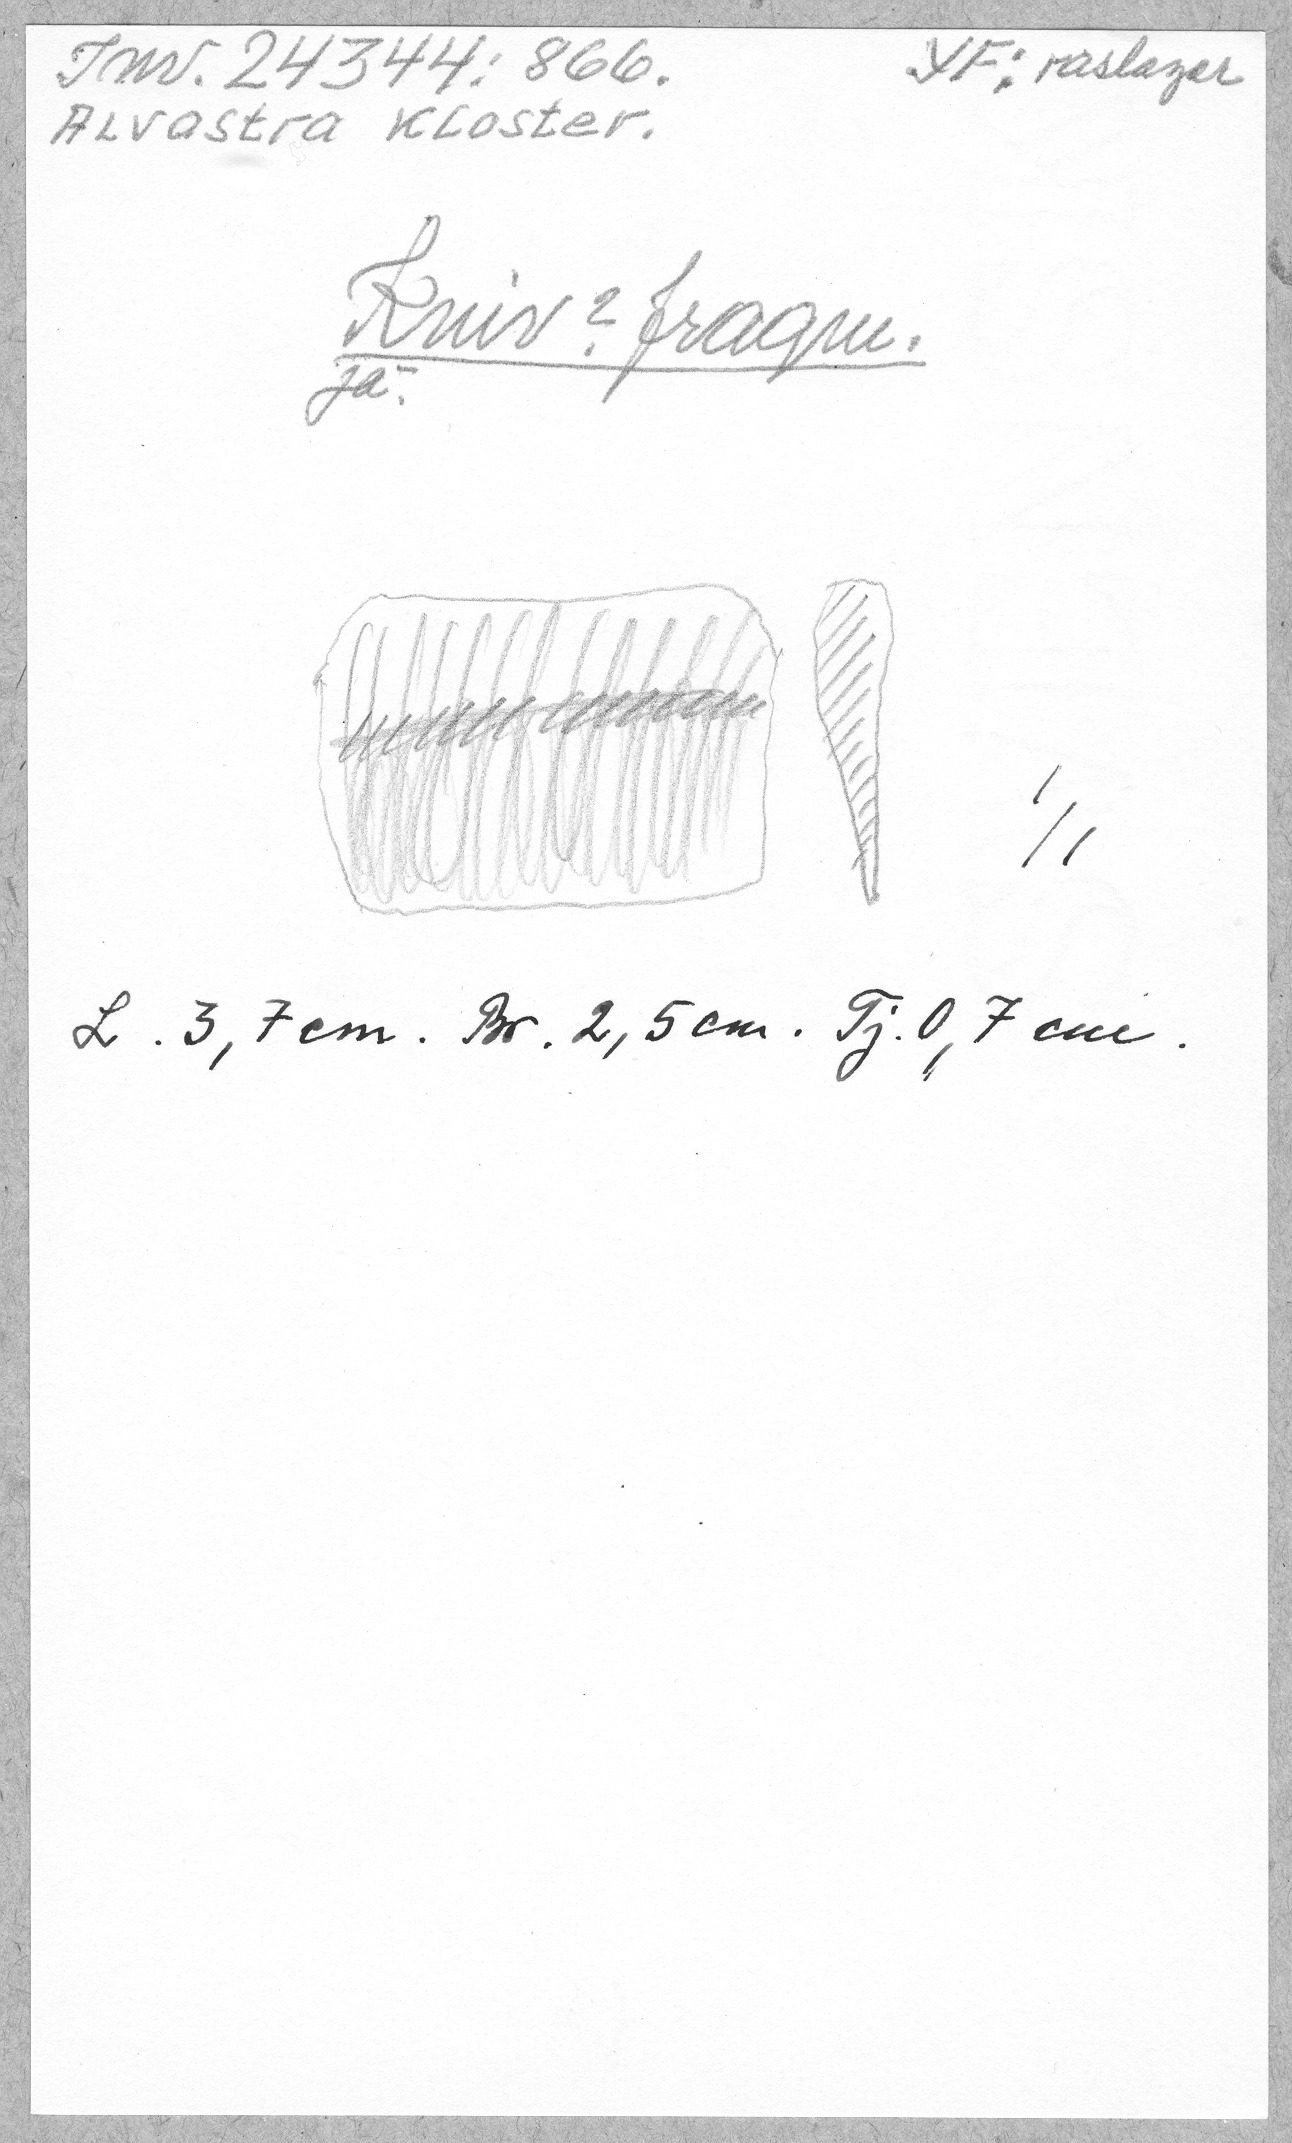 Inv. 24344: 866.
YF: raslager
Alvastra Kloster.
Kniv? fragm.
ja:
1/1
L. 3,7 cm. Br. 2,5 cm. Tj. 0,7 cm.